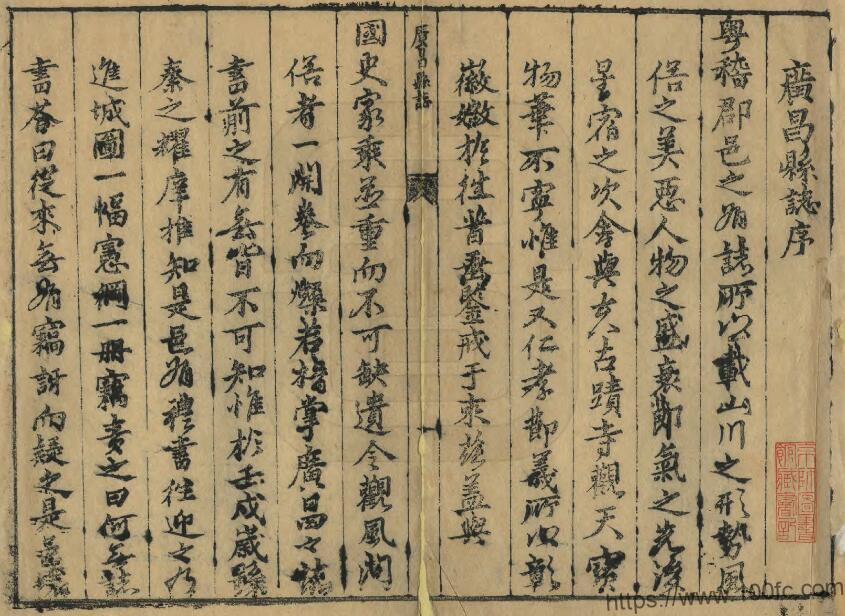 廣昌縣誌序
粵稽郡邑之有誌所以載山川之形勢風
俗之美惡人物之盛衰節氣之先後
星宿之次舍與夫古蹟寺觀天寶
物華不寧惟是又仁孝節義所以彰
徽媺於往昔垂鑒戒于來茲蓋與
廣昌縣誌
國史家乘並重而不可缺遺令觀風問
俗者一開卷而燦若指掌廣昌之誌
書前之有無皆不可知惟於壬戌歲
秦之耀摩推知是邑有禮書往迎之
進城圖一幅憲綱一冊竊責之曰何無誌
書答曰從來無有竊訝而疑之是邑
https://www.100fc.com